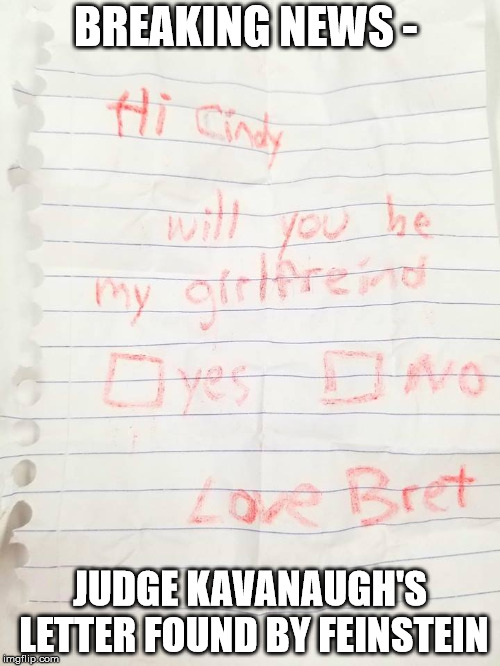 BREAKING NEWS -
Hi Cindy
will you be
my girlfreind
yes NO
Love Bret
JUDGE KAVANAUGH'S
LETTER FOUND BY FEINSTEIN
imgflip.com